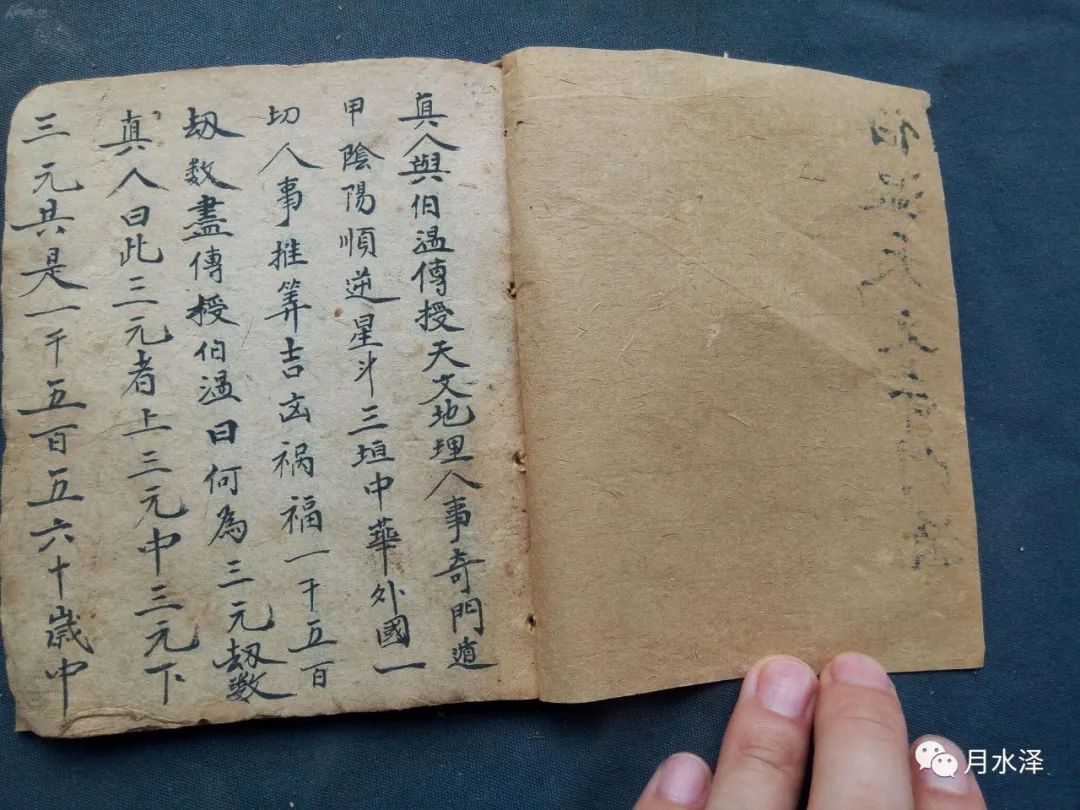 真人與伯温傳授天文地理人事奇門遁
甲陰陽順逆星斗三垣中華外國一
切人事推筭吉凶祸福一千五百
刼数盡傳授伯温曰何為三元刼数
真人曰此三元者上三元中三元下
三元共是一千五百五六十歲中
月水泽